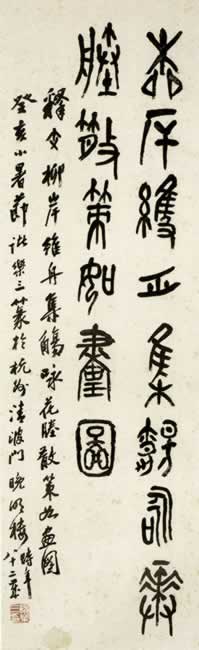 柳岸維舟集觴詠花
塍散策如畫圖
釋文柳岸維舟集觴詠花塍散策如畫圖
癸亥小暑節諸樂三篆於杭州清波門晚樓時年八十二歲